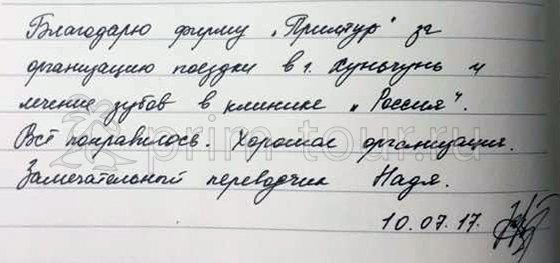 Благодарю фирму „Примтур" за
организацию поездки в г. Хуньчунь и
лечение зубов в клинике „Россия".
Всё понравилось. Хорошая организация.
Замечательный переводчик Надя.
10.07.17.
prim-tour.ru